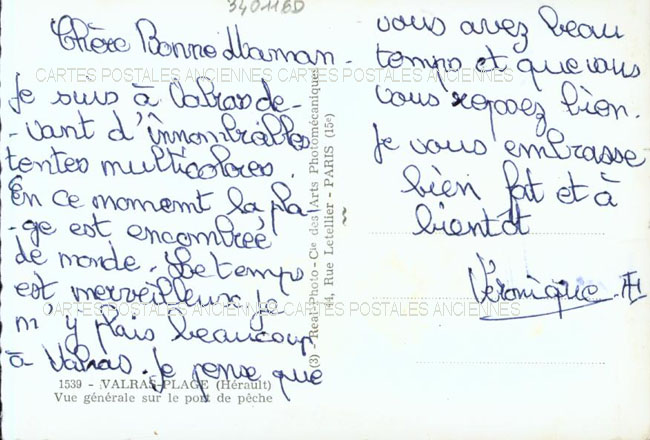 34011BD
Chère Bonne Maman -
Je suis à Valras de-
-vant d'innombrables
tentes multicolores.
En ce moment la pla-
-ge est encombrée
de monde. Le temps
est merveilleux je
m'y plais beaucoup
à Valras. Je pense que
1539 - VALRAS-PLAGE (Hérault)
Vue générale sur le port de pêche
(3) Real-Photo - Cie des Arts Photomécaniques
44, Rue Letellier - PARIS (15e)
vous avez beau
temps et que vous
vous reposez bien.
Je vous embrasse
bien fat et à
bientôt
Véronique.
CARTES POSTALES ANCIENNES CARTES POSTALES ANCIENNES
CARTES POSTALES ANCIENNES CARTES POSTALES ANCIENNES